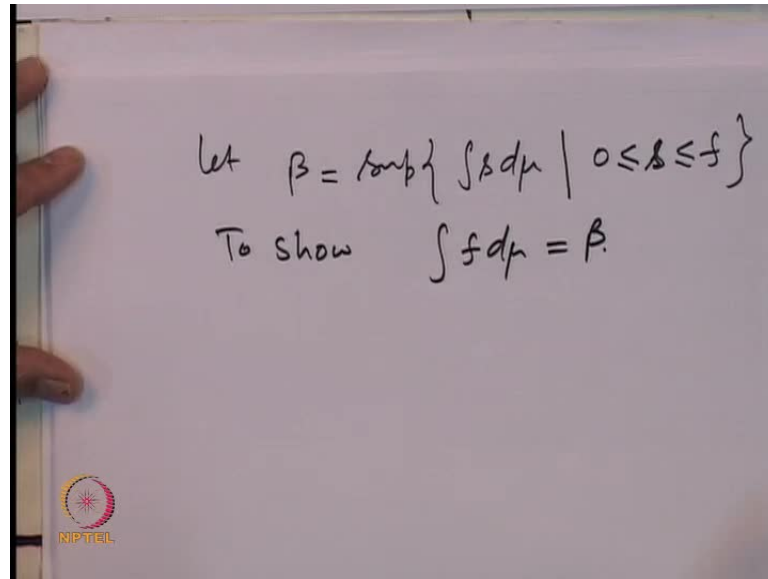 let β = sup{ ∫s dμ | 0 ≤ s ≤ f }
To show ∫ f dμ = β.
NPTEL